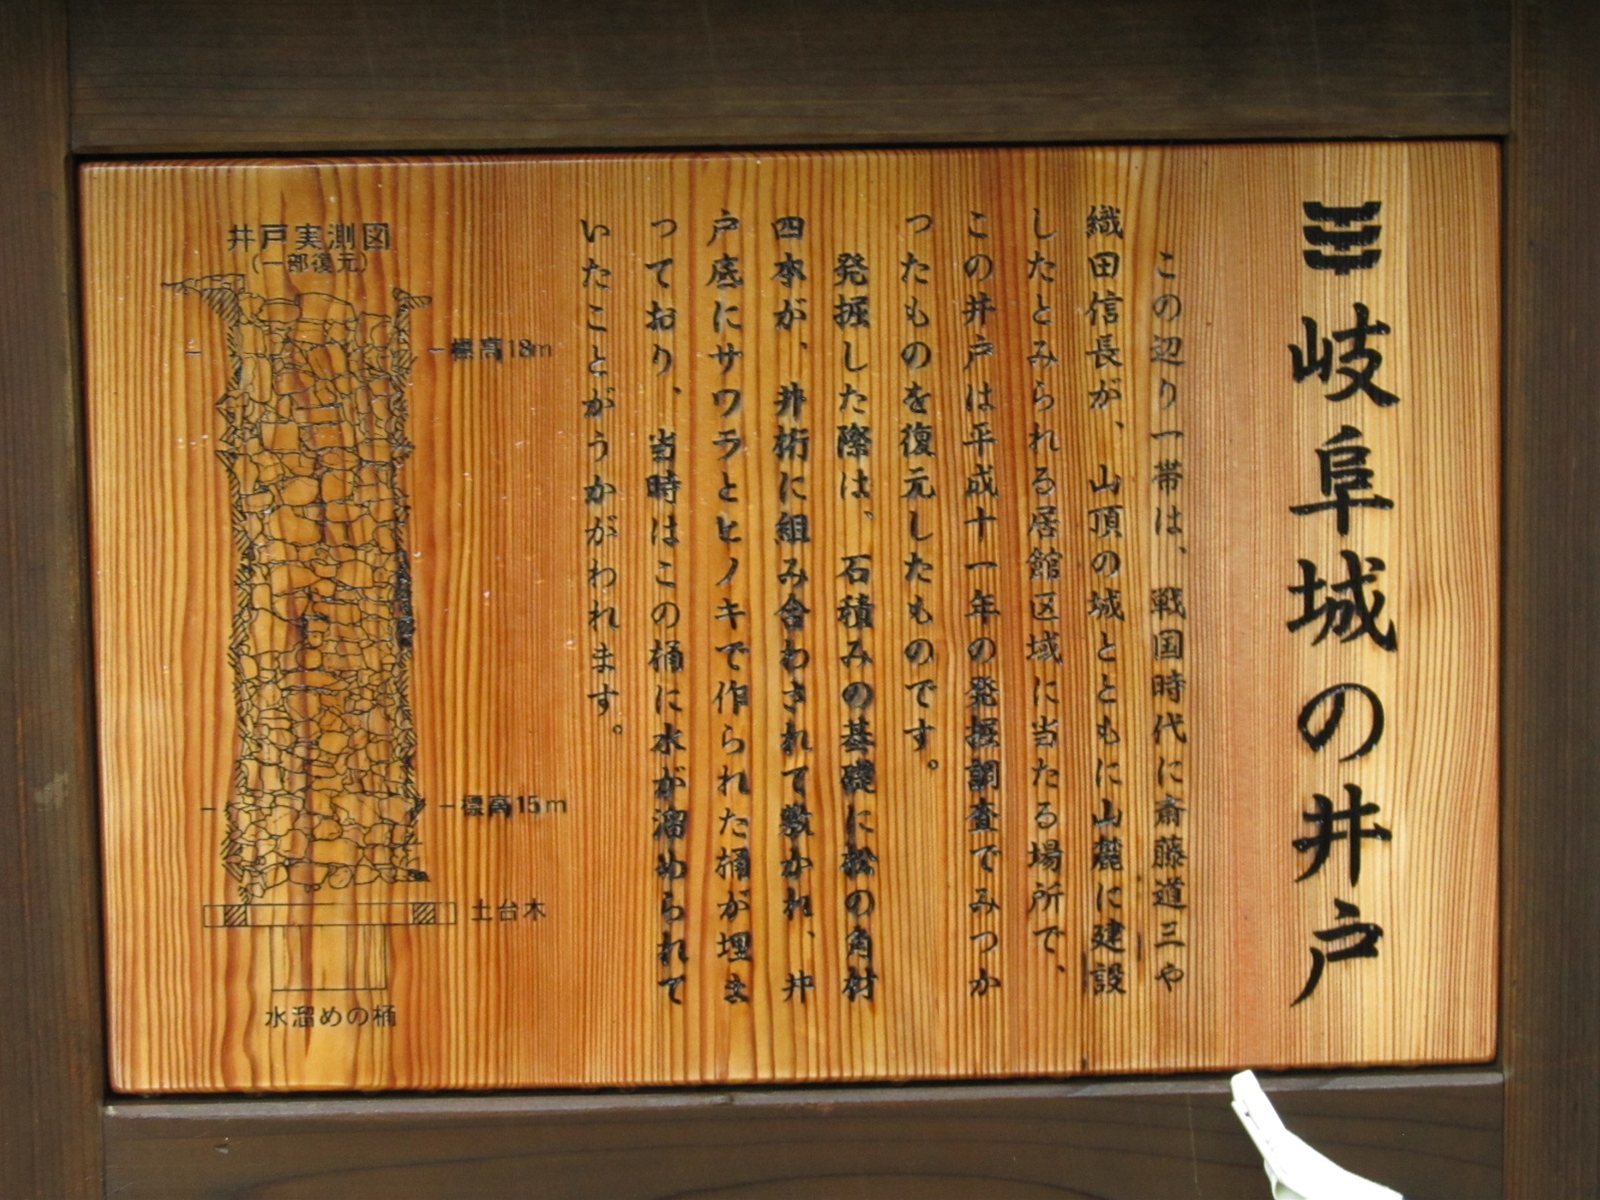 岐阜城の井戸
この辺り一帯は、戦国時代に斎藤道三や
織田信長が、山頂の城とともに山麓に建設
したとみられる居館区域に当たる場所で、
この井戸は平成十一年の発掘調査でみつか
ったものを復元したものです。
発掘した際は、石積みの基礎に松の角材
四本が、井桁に組み合わされて敷かれ、井
戸底にサワラとヒノキで作られた桶が埋ま
っており、当時はこの桶に水が溜められて
いたことがうかがわれます。
井戸実測図
(一部復元)
標高18m
標高15m
土台木
水溜めの桶